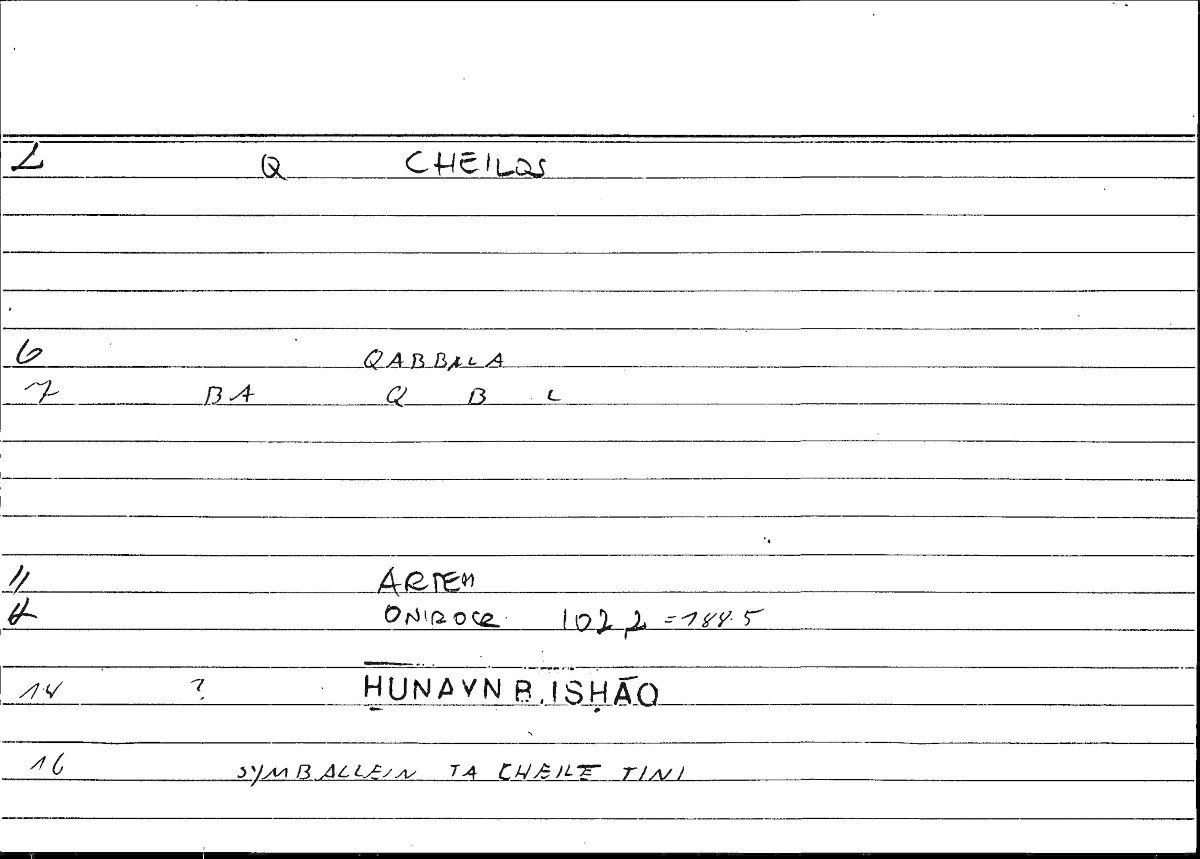 2 Q CHEILOS
6 QABBALA
7 BA Q B L
11 ARTEM
ONIROCR. 102 2 = 188.5
14 ? ḤUNAYN B. ISḤĀQ
16 SYMBALLEIN TA CHEILE TINI